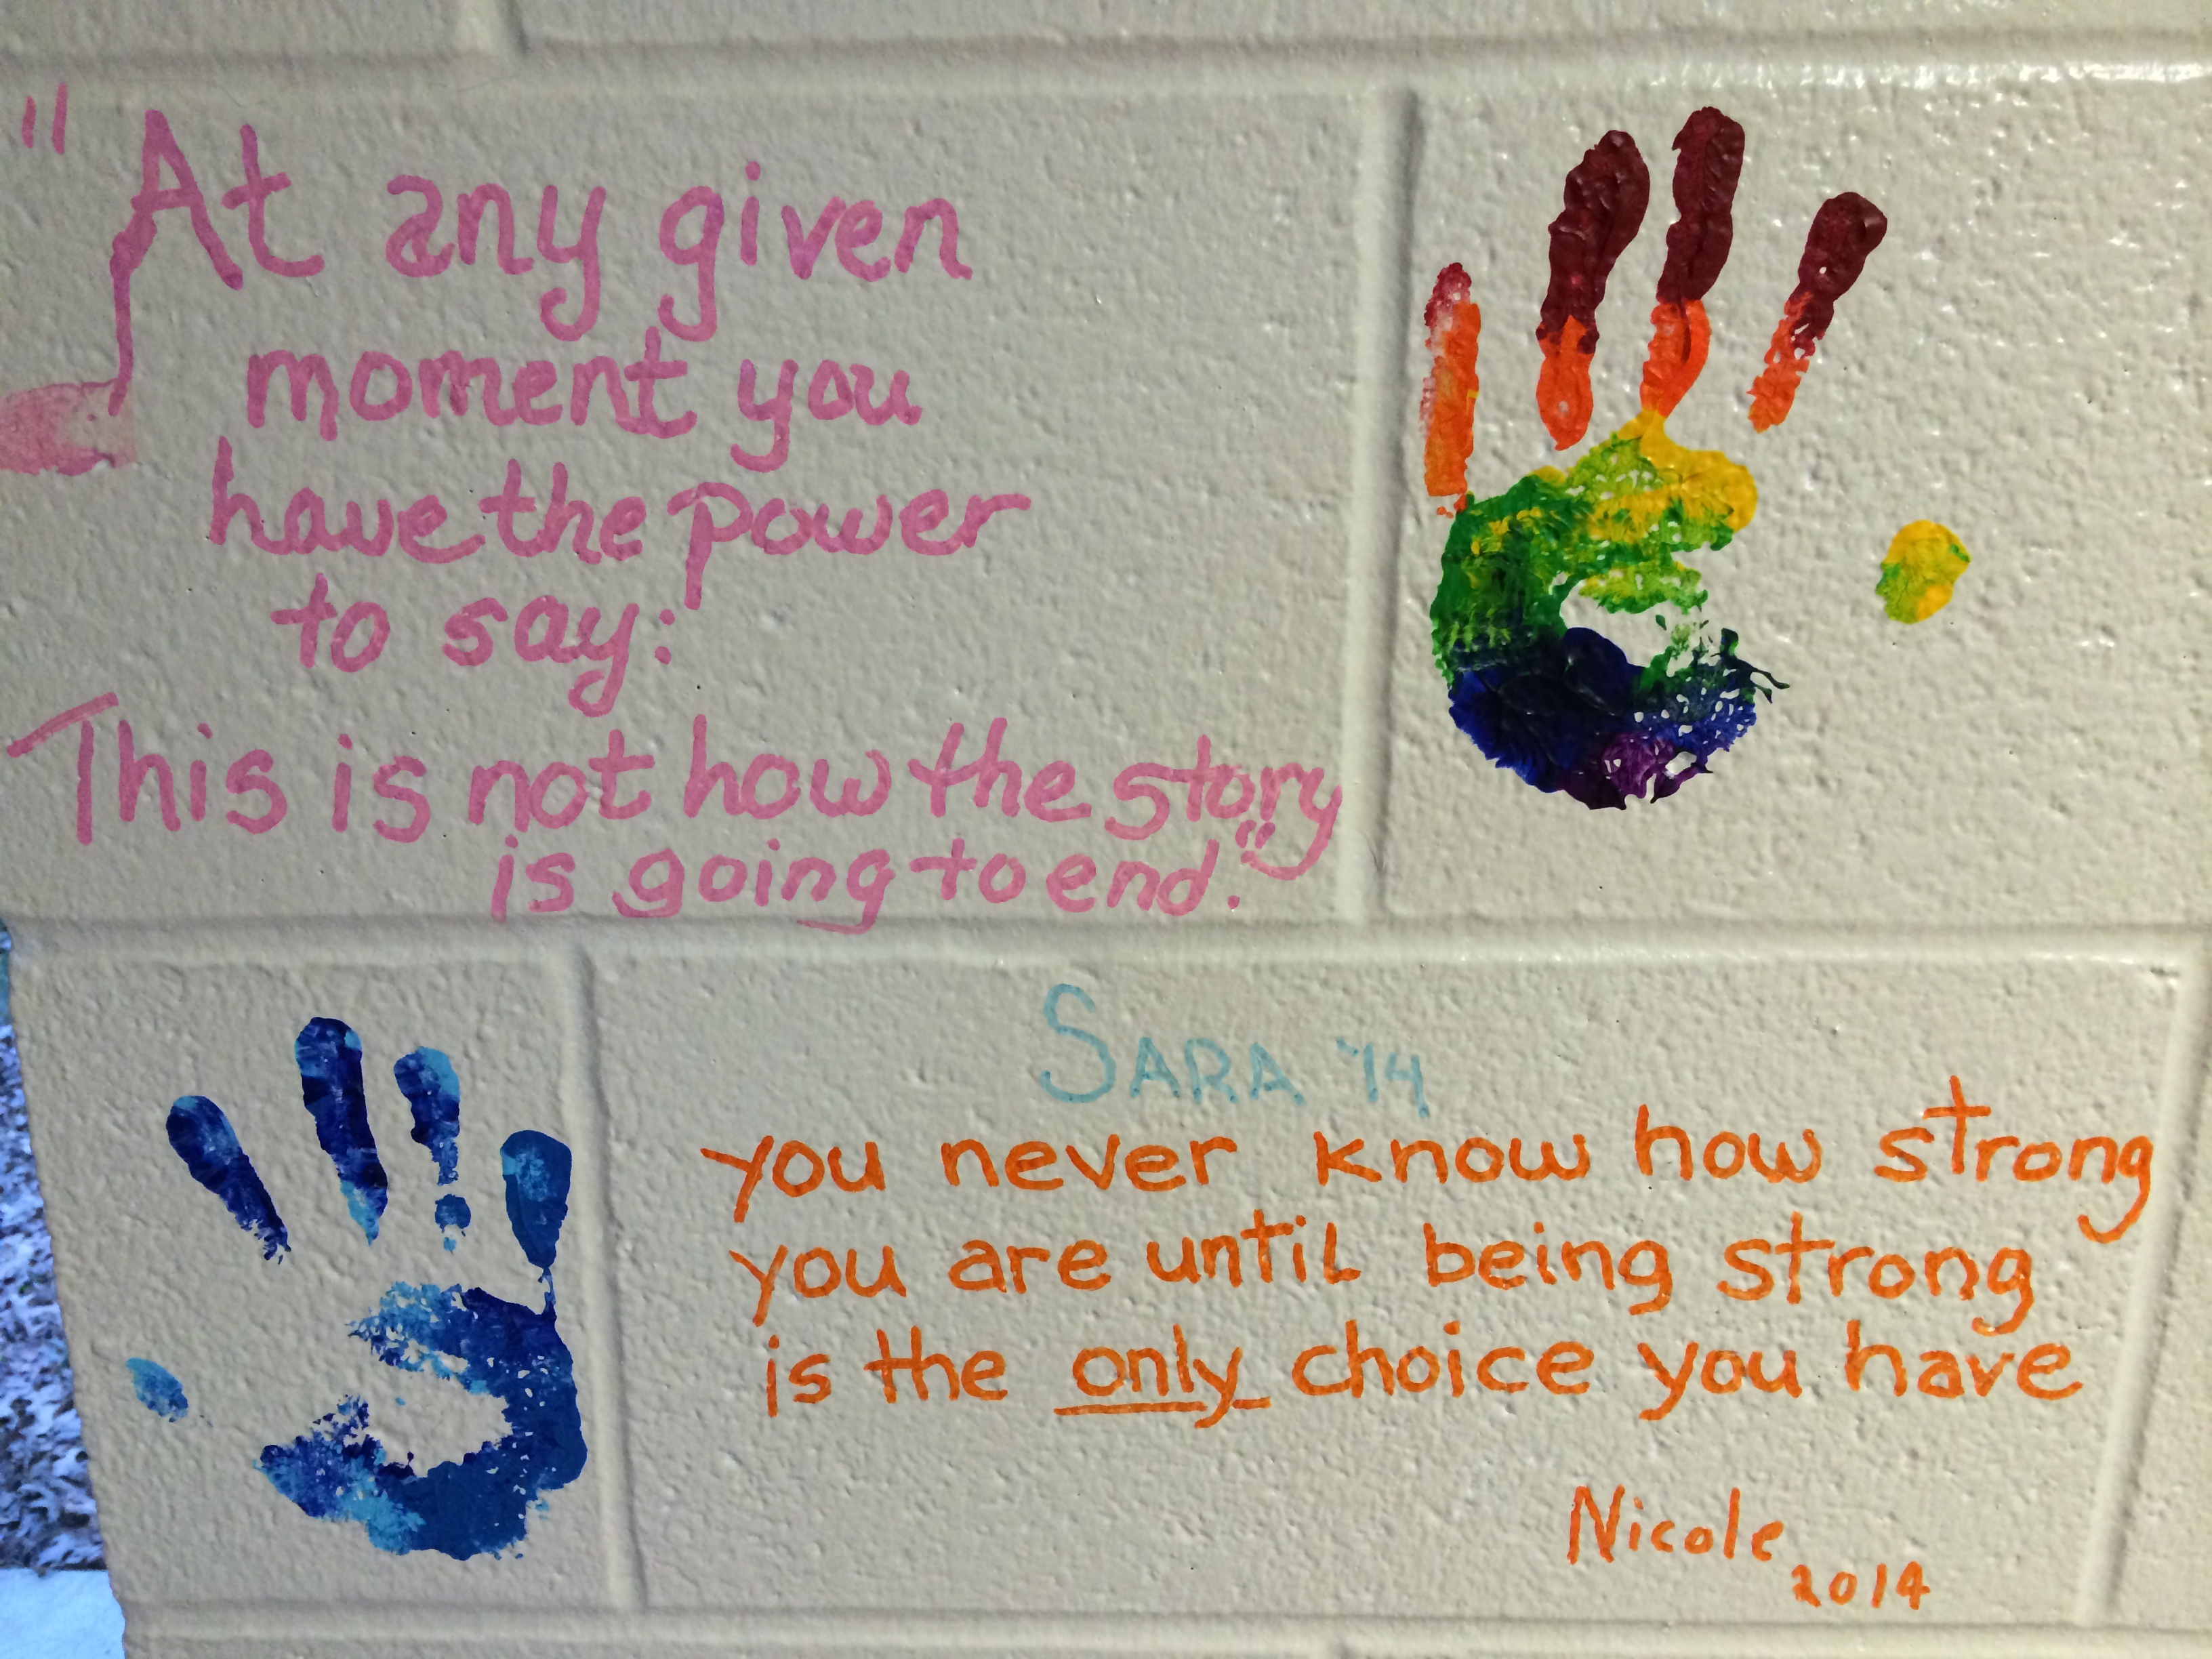 "At any given
moment you
have the power
to say:
This is not how the story
is going to end."
SARA '14
you never know how strong
you are until being strong
is the only choice you have
Nicole
2014